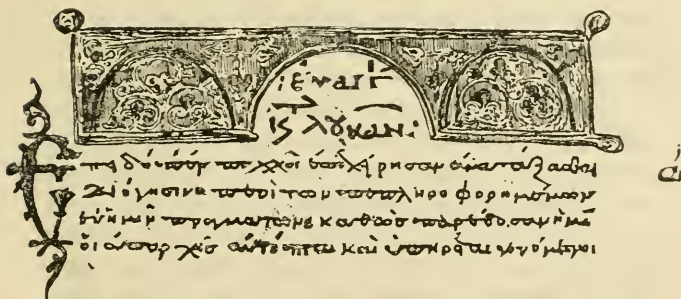 ἐυαγγ
λουκαν:
Ἐπειδήπερ πολλοὶ ἐπεχείρησαν ἀνατάξασθαι
διήγησιν περὶ τῶν πεπληροφορημένων
ἐν ἡμῖν πραγμάτων καθὼς παρέδοσαν ἡμῖ
οἱ ἀπαρχῆς αὐτόπται καὶ ὑπηρέται γενόμενοι